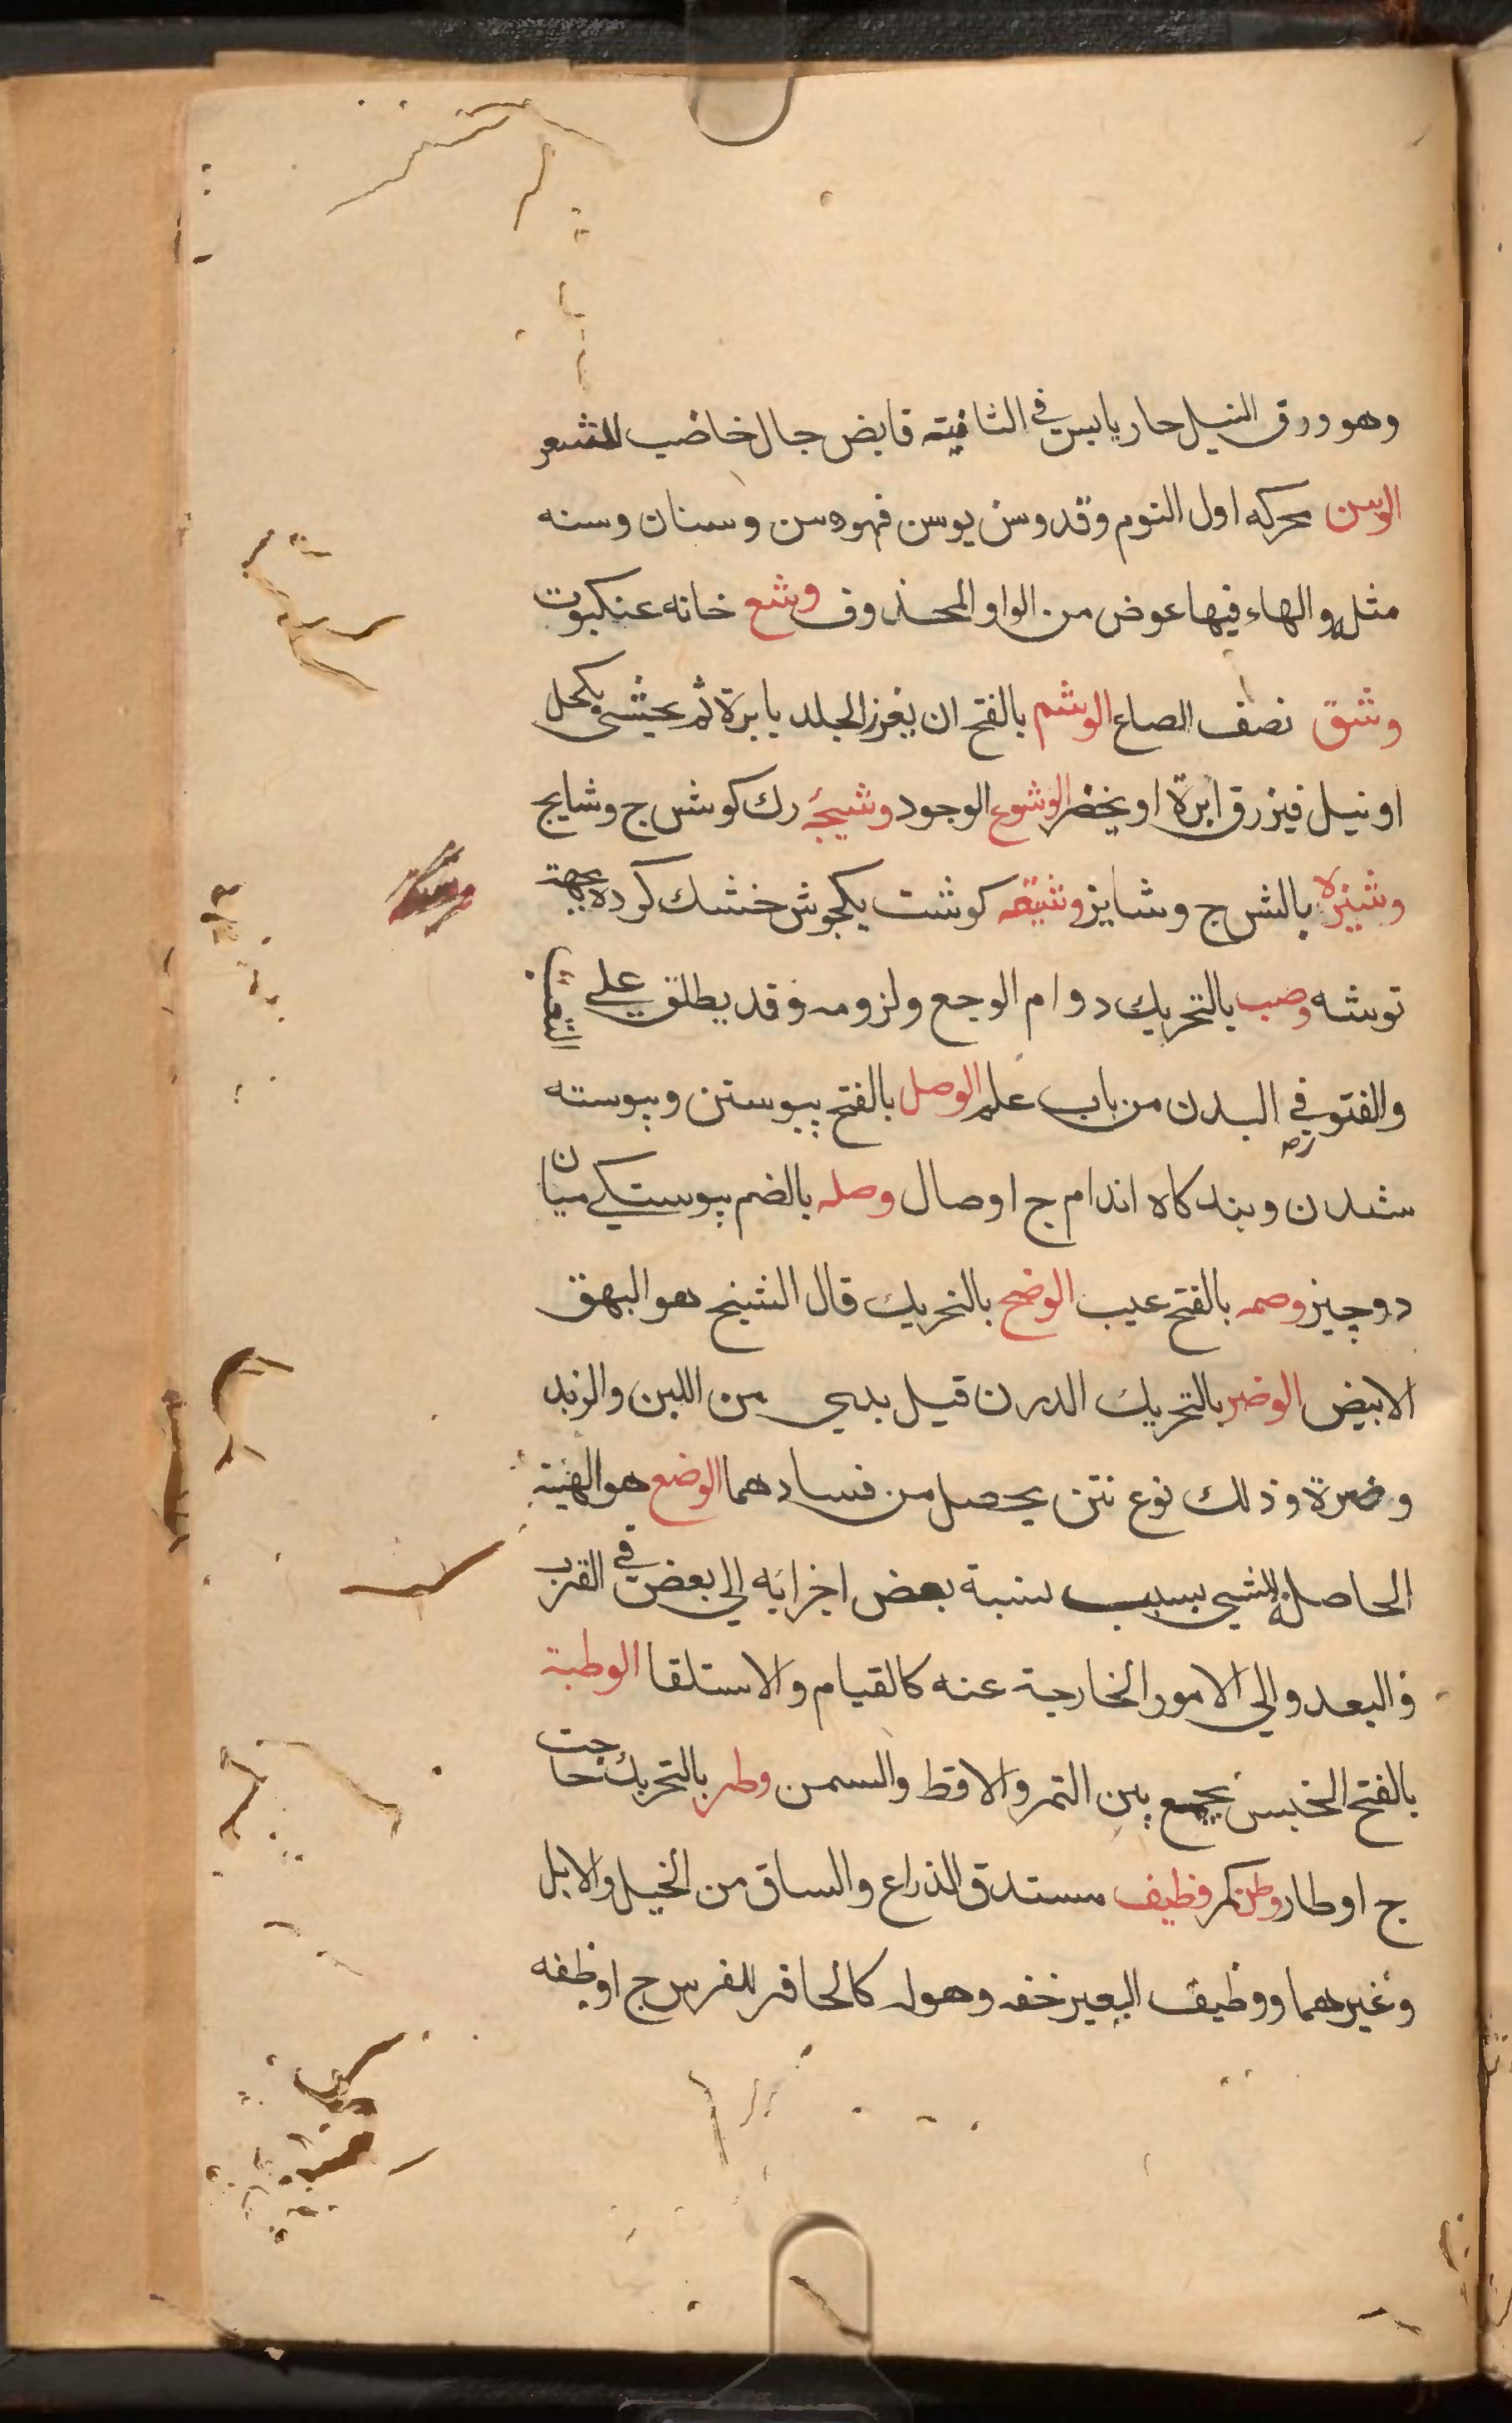 وهو ورق النيل حار يابس في الثانيته قابض جال خاضب للشعر
الوسن محركه اول النوم وقد وسن يوسن فهو وسن وسنان وسنه
مثله والهاء فيها عوض من الواو المحذوف وشع خانه عنكبوت
وشق نصف الصاع الوشم بالفتح ان يغرز الجلد بابرة ثم يحشى بكحل
او نيل فيزرق ابرة او يخضر الوشوع الوجود وشيجه رك كوش ج وشايج
وشيزه بالش ج وشايز وشيقه كوشت يكجوش خشك كرده بجهة
توشه وصب بالتحريك دوام الوجع ولزومه وقد يطلق على
والفتور في البدن من باب علم الوصل بالفتح پيوستن وپيوسته
شدن وبند كاه اندام ج اوصال وصله بالضم پيوستكي ميان
دو چيز وصمه بالفتح عيب الوضح بالتحريك قال الشيخ هو البهق
الابيض الوضر بالتحريك الدرن قيل يدي من اللبن والزبد
وضرة وذلك نوع نتن يحصل من فسادهما الوضع هو الهيئة
الحاصلة للشي بسبب نسبة بعض اجزايه الى بعض في القرب
والبعد والي الامور الخارجية عنه كالقيام والاستلقا الوطبة
بالفتح الخبيس يجمع بين التمر والاقط والسمن وطر بالتحريك حاجت
ج اوطار وطن كمر وظيف مستدق الذراع والساق من الخيل والابل
وغيرهما ووظيف البعير خفه وهو له كالحافر للفرس ج اوظفه